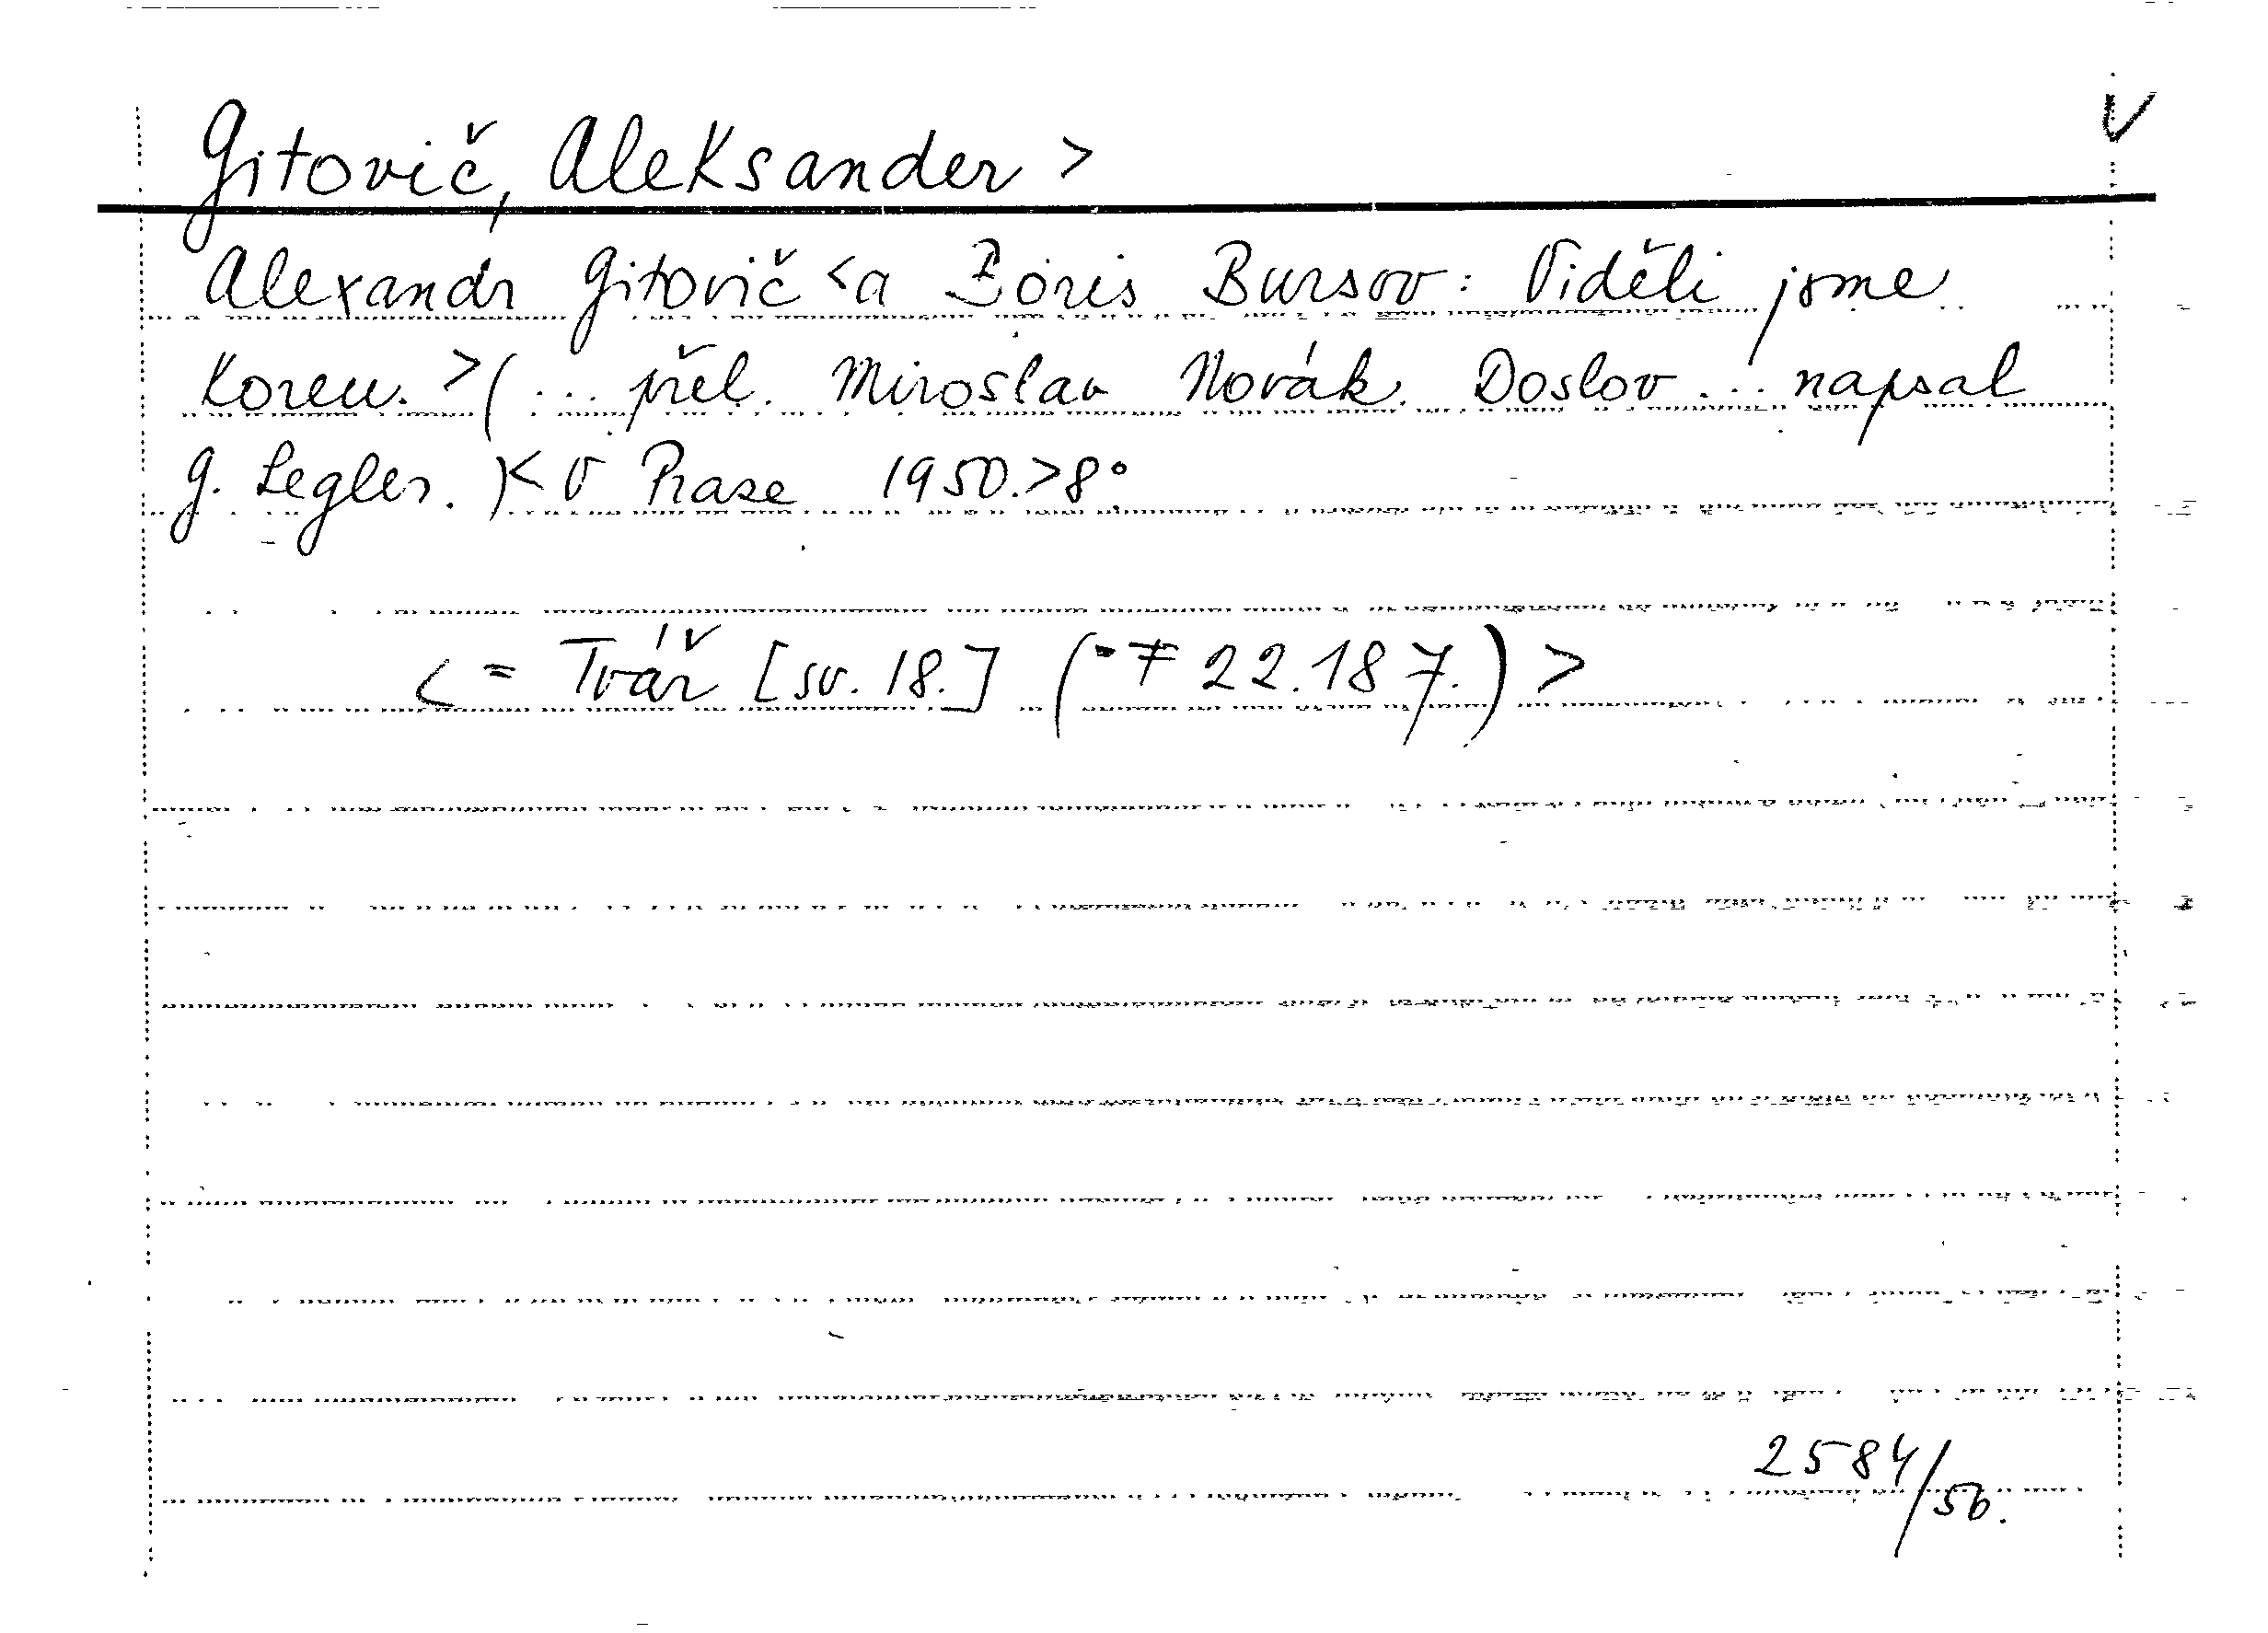 Gitovič, Aleksander > V
Alexandr Gitovič < a Boris Bursov: Viděli jsme
Koreu. > (... přel. Miroslav Novák. Doslov ... napsal
g. Legler. )< V Praze 1950. > 8°
< = Tvář [sv. 18.] (- F 22.187.) >
2584/50.